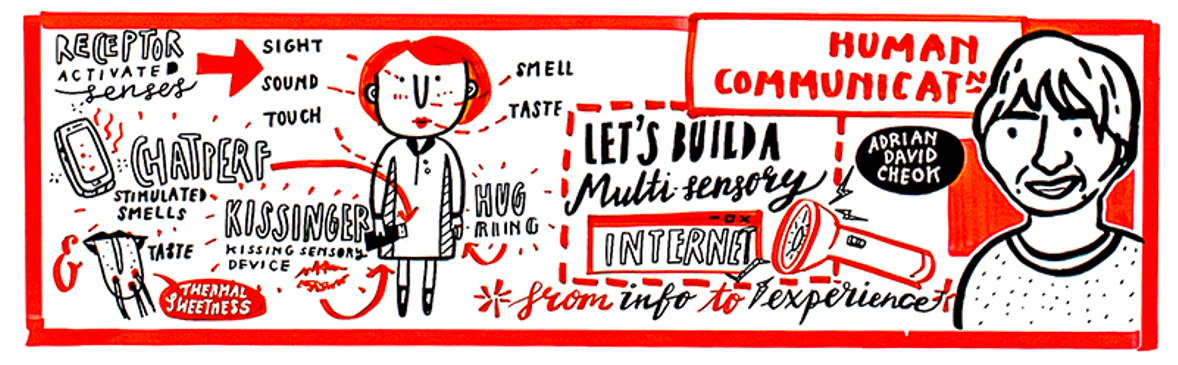 RECEPTOR
ACTIVATED
senses
SIGHT
SOUND
TOUCH
SMELL
TASTE
CHATPERF
STIMULATED
SMELLS
&
TASTE
THERMAL
SWEETNESS
KISSINGER
KISSING SENSORY
DEVICE
HUG
RIING
HUMAN
COMMUNICATN
LET'S BUILD A
Multi-sensory
INTERNET
from info to experience
ADRIAN
DAVID
CHEOK